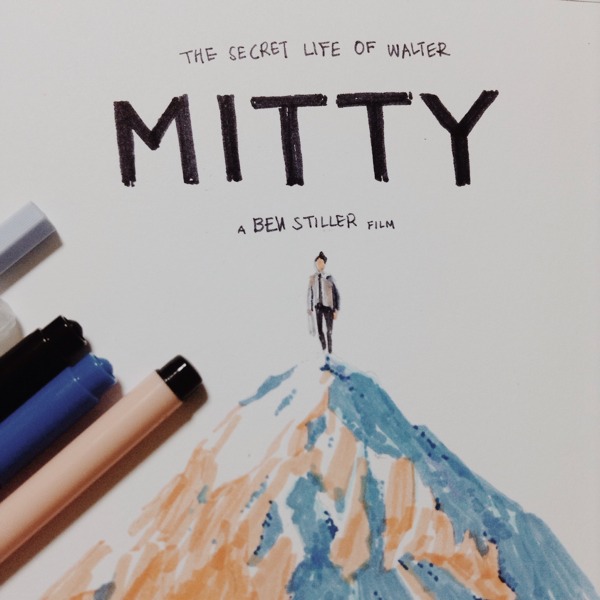 THE SECRET LIFE OF WALTER
MITTY
A BEN STILLER FILM